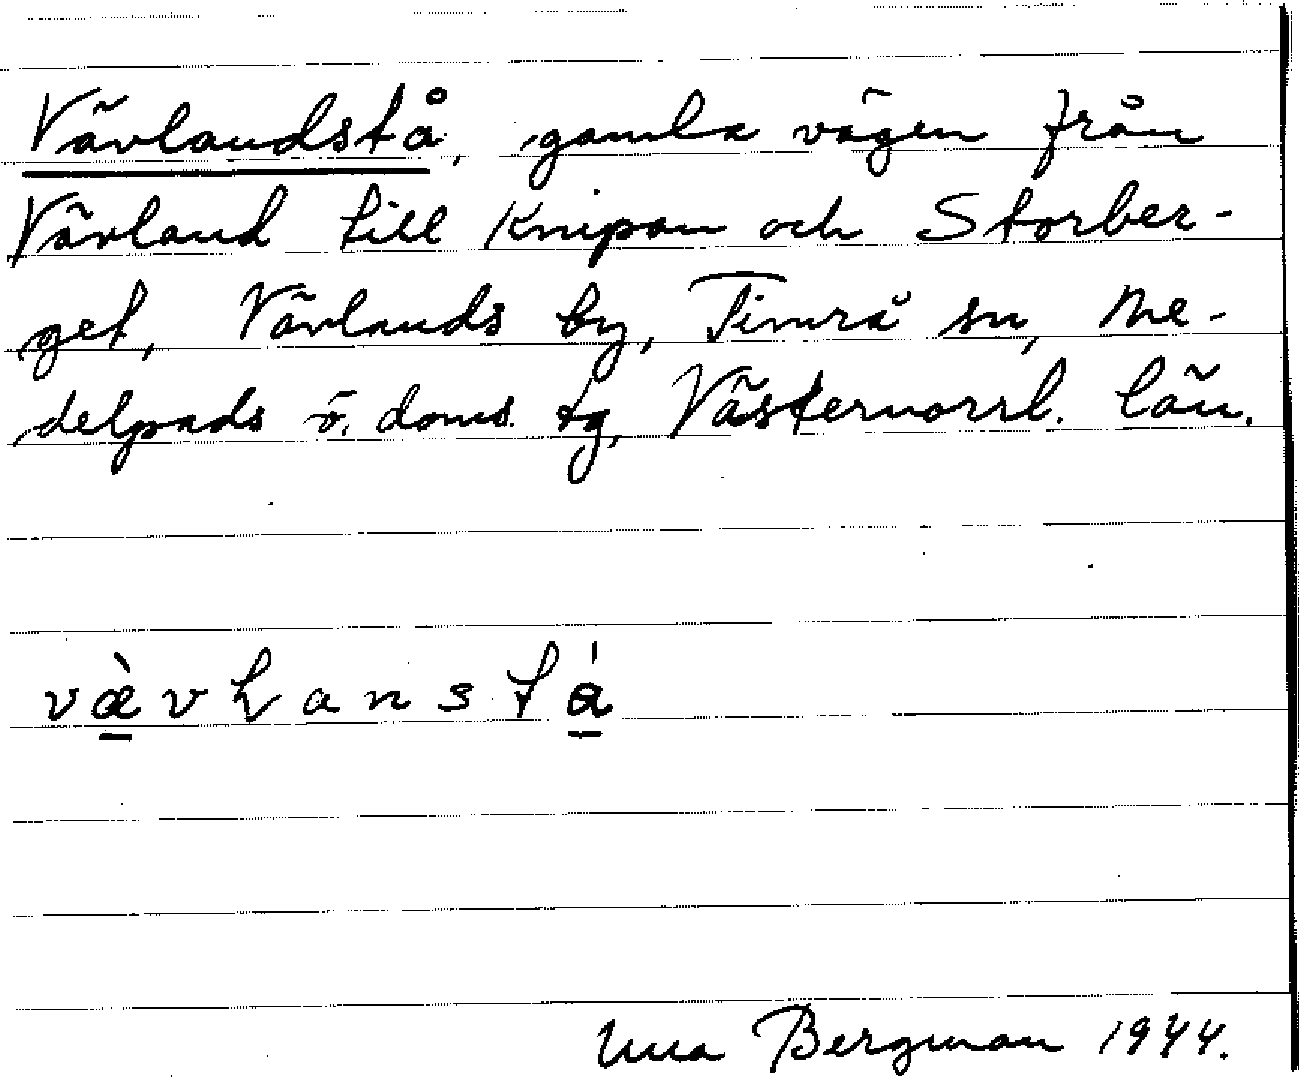 Vävlandstå, gamla vägen från
Vävland till Knipan och Storber-
get, Vävlands by, Timrå sn, Me-
delpads ö. doms. tg, Västernorrl. län.
væ̀vlanstá
Una Bergman 1944.